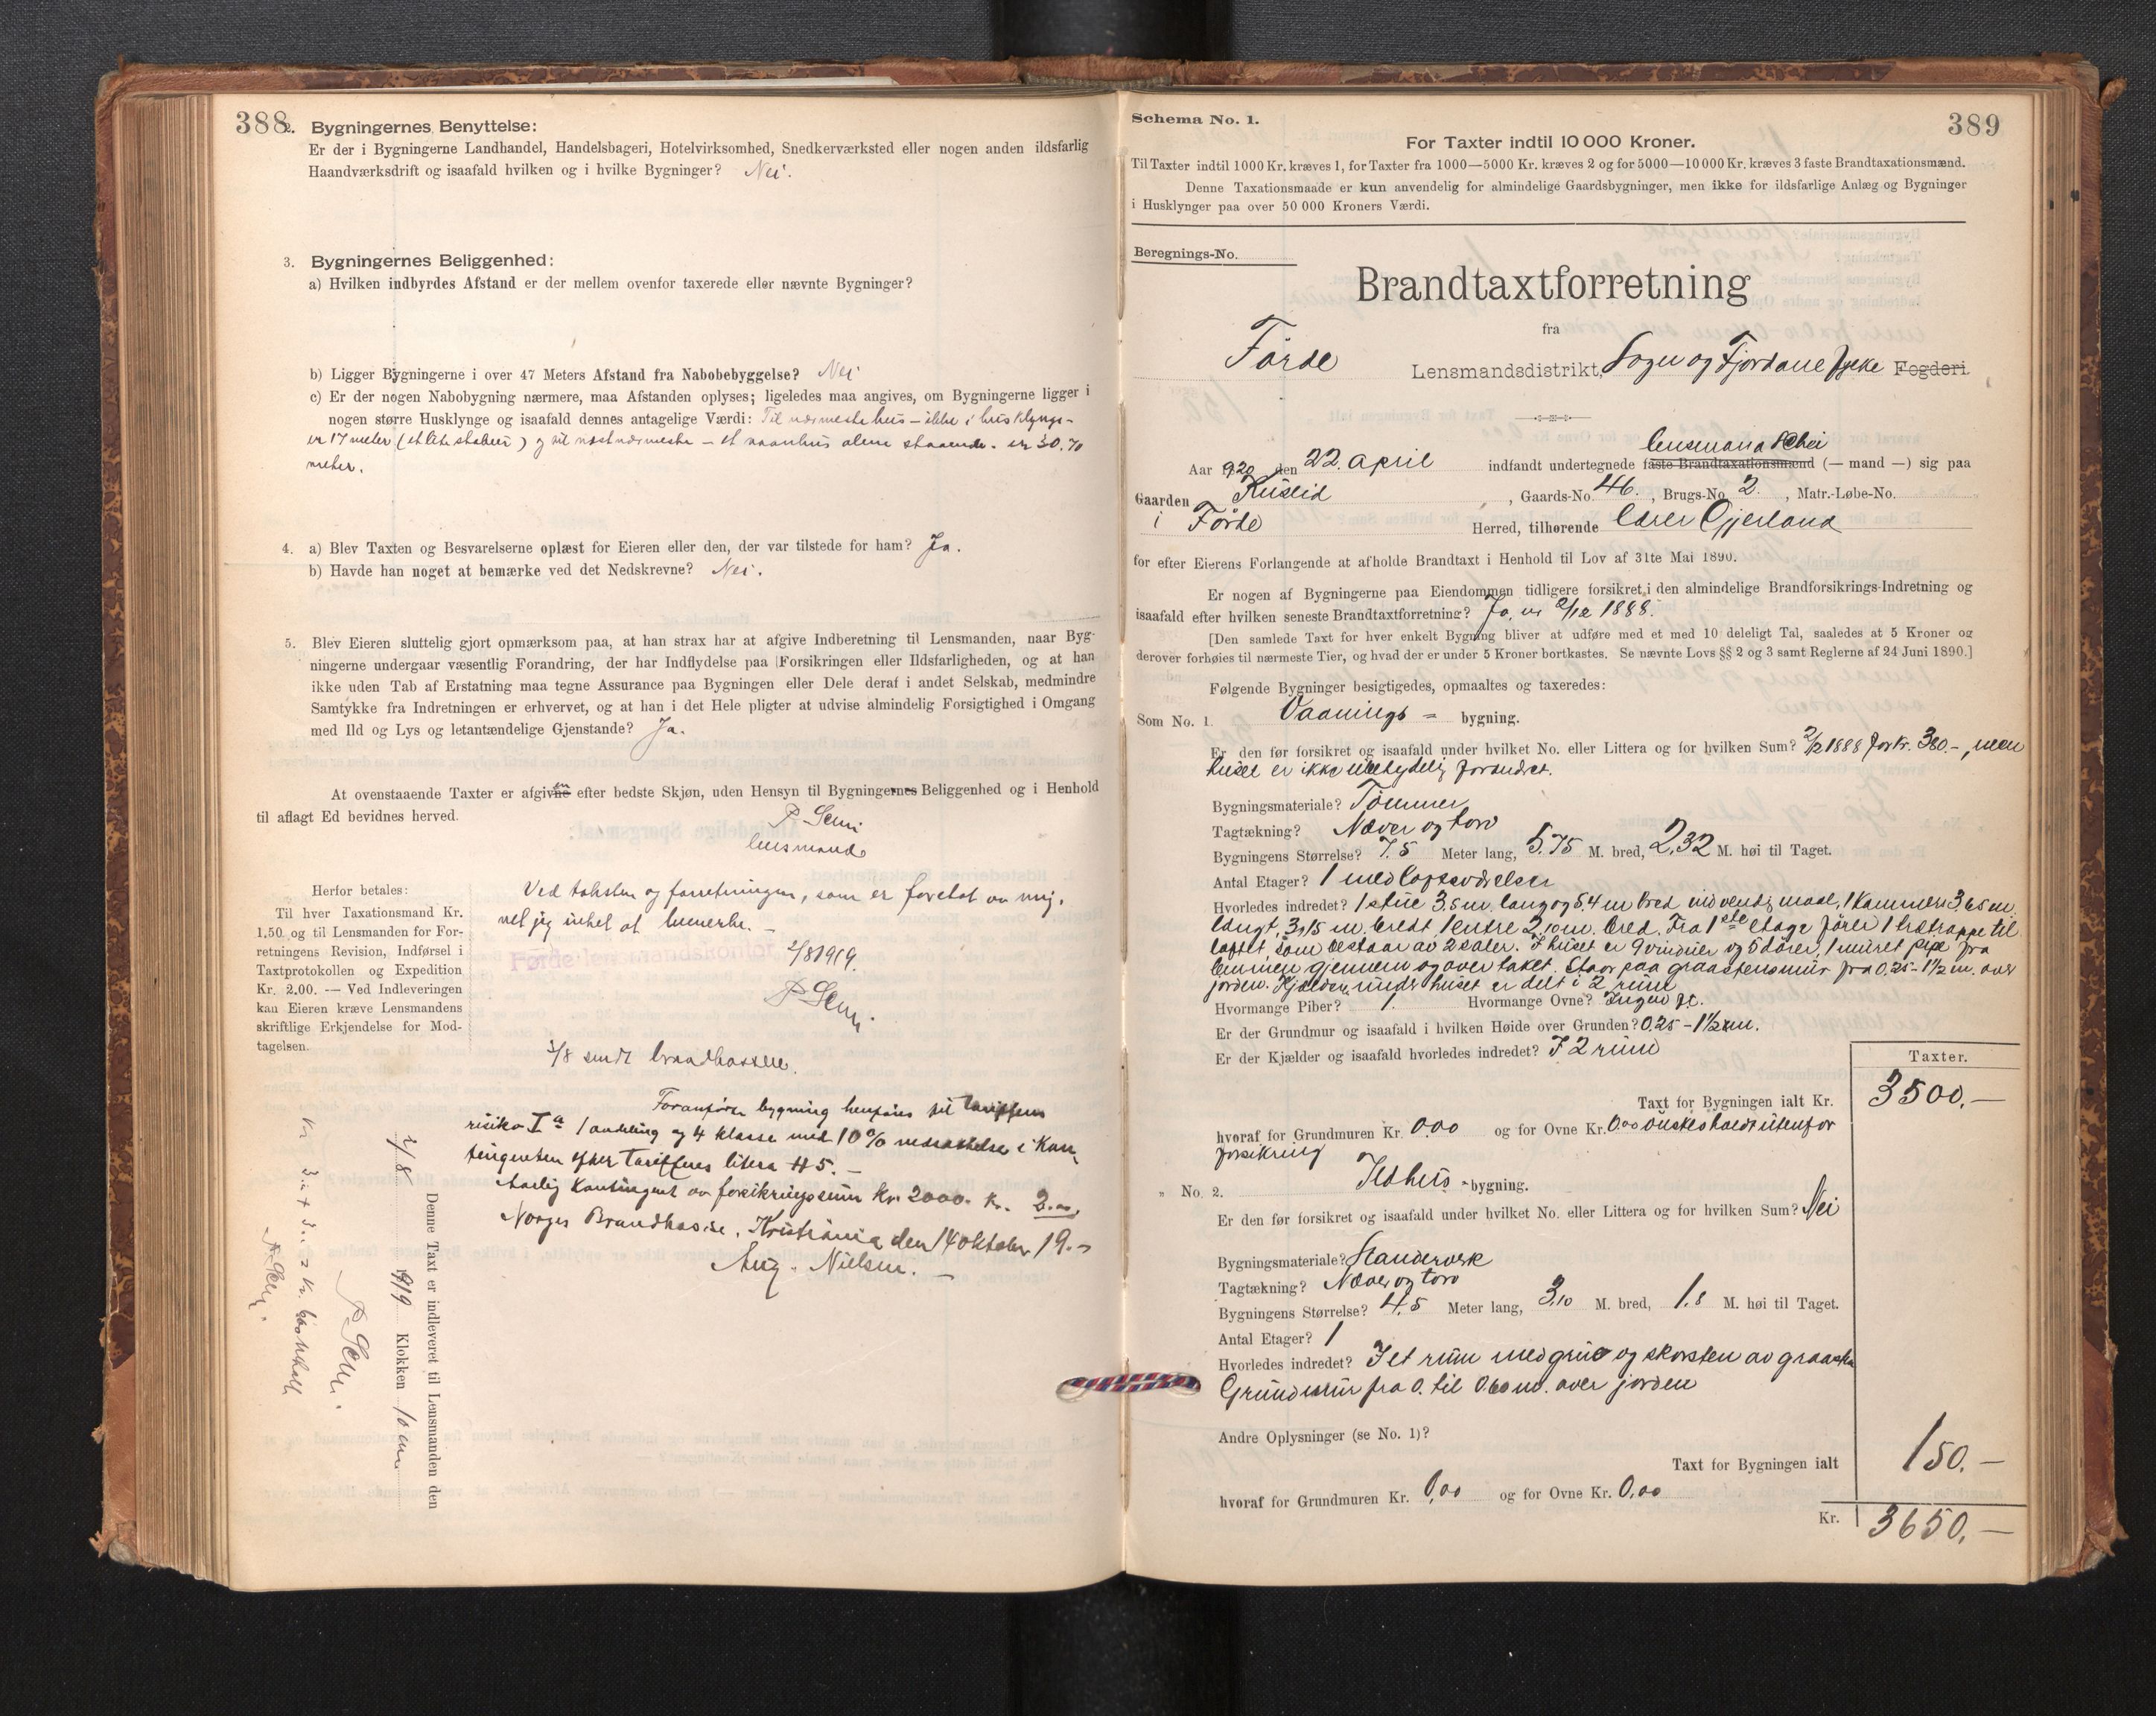 388
2. Bygningernes Benyttelse:
Er der i Bygningerne Landhandel, Handelsbageri, Hotelvirksomhed, Snedkerværksted eller nogen anden ildsfarlig
Haandværksdrift og isaafald hvilken og i hvilke Bygninger? Nei.
3. Bygningernes Beliggenhed:
a) Hvilken indbyrdes Afstand er der mellem ovenfor taxerede eller nævnte Bygninger?
b) Ligger Bygningerne i over 47 Meters Afstand fra Nabobebyggelse? Nei
c) Er der nogen Nabobygning nærmere, maa Afstanden oplyses; ligeledes maa angives, om Bygningerne ligger i
nogen større Husklynge og isaafald dennes antagelige Værdi: Til nærmeste hus – ikke i husklynge –
er 17 meter (et lite stabur) og til næstnærmeste – et vaanhus alene staaende – er 30.70
meter.
4. a) Blev Taxten og Besvarelserne oplæst for Eieren eller den, der var tilstede for ham? Ja.
b) Havde han noget at bemærke ved det Nedskrevne? Nei.
5. Blev Eieren sluttelig gjort opmærksom paa, at han strax har at afgive Indberetning til Lensmanden, naar Byg-
ningerne undergaar væsentlig Forandring, der har Indflydelse paa Forsikringen eller Ildsfarligheden, og at han
ikke uden Tab af Erstatning maa tegne Assurance paa Bygningen eller Dele deraf i andet Selskab, medmindre
Samtykke fra Indretningen er erhvervet, og at han i det Hele pligter at udvise almindelig Forsigtighed i Omgang
med Ild og Lys og letantændelige Gjenstande? Ja.
At ovenstaaende Taxter er afgivne efter bedste Skjøn, uden Hensyn til Bygningernes Beliggenhed og i Henhold
til aflagt Ed bevidnes herved.
lensmand
Herfor betales:
Til hver Taxationsmand Kr.
1,50 og til Lensmanden for For-
retningens Revision, Indførsel i
Taxtprotokollen og Expedition
Kr. 2,00. — Ved Indleveringen
kan Eieren kræve Lensmandens
skriftlige Erkjendelse for Mod-
tagelsen.
Ved taksten og forretningen, som er foretat av mig,
vet jeg intet at bemerke. –
Førde lensmandskontor
2/8 1919.
2/8 sendt brandkassen.
Foranførte bygning henføres til tariffens
risiko Ia 1 avdeling og 4 klasse med 10% nedsættelse i Kon-
tingenten efter tariffens litera H5. –
Aarlig kontingent av forsikringssum kr. 2000. Kr.
Norges Brandkasse, Kristiania den 14 oktober 19. –
Aug. Nielsen. –
Denne Taxt er indleveret til Lensmanden den
2/8 1919 Klokken 10 em
389
Schema No. 1.
For Taxter indtil 10 000 Kroner.
Til Taxter indtil 1000 Kr. kræves 1, for Taxter fra 1000—5000 Kr. kræves 2 og for 5000—10 000 Kr. kræves 3 faste Brandtaxationsmænd.
Denne Taxationsmaade er kun anvendelig for almindelige Gaardsbygninger, men ikke for ildsfarlige Anlæg og Bygninger
i Husklynger paa over 50 000 Kroners Værdi.
Beregnings-No.
Brandtaxtforretning
fra
Førde Lensmandsdistrikt, Sogn og Fjordane fylke Fogderi
lensmand
Aar 1920 den 22. april indfandt undertegnede faste Brandtaxationsmænd (— mand —) sig paa
Gaarden Kusslid, Gaards-No. 46., Brugs-No. 2., Matr.-Løbe-No.
i Førde Herred, tilhørende Gjerland
for efter Eierens Forlangende at afholde Brandtaxt i Henhold til Lov af 31te Mai 1890.
Er nogen af Bygningerne paa Eiendommen tidligere forsikret i den almindelige Brandforsikrings-Indretning og
isaafald efter hvilken seneste Brandtaxtforretning? Ja, 2/12 1888.
[Den samlede Taxt for hver enkelt Bygning bliver at udføre med et med 10 deleligt Tal, saaledes at 5 Kroner og
derover forhøies til nærmeste Tier, og hvad der er under 5 Kroner bortkastes. Se nævnte Lovs §§ 2 og 3 samt Reglerne af 24 Juni 1890.]
Følgende Bygninger besigtigedes, opmaaltes og taxeredes:
Som No. 1. Vaanings = bygning.
Er den før forsikret og isaafald under hvilket No. eller Littera og for hvilken Sum? 2/12 1888 for kr. 380.–, men
huset er ikke ubetydelig forandret.
Bygningsmateriale? Tømmer
Tagtækning? Næver og torv
Bygningens Størrelse? 7.5 Meter lang, 5.75 M. bred, 2.32 M. høi til Taget.
Antal Etager? 1 med loftsværelser
Hvorledes indredet? 1 stue 3.5 m. lang og 5.4 m bred indvendig maal, 1 kammers 3.65 m.
langt, 3.15 m. bredt 1 entre 2.10 m. bred. Fra 1ste etage fører 1 trætrappe til
loftet, som bestaar av 2 saler. I huset er 9 vinduer og 6 dører, 1 muret pipe fra
lemmen gjennem og over taket. Staar paa graastensmur fra 0.25–1½ m. over
jorden. Kjælder under huset er delt i 2 rum
Hvormange Piber? 1. Hvormange Ovne? Ingen
Er der Grundmur og isaafald i hvilken Høide over Grunden? 0.25–1½ m.
Er der Kjælder og isaafald hvorledes indredet? I 2 rum
Taxter.
Taxt for Bygningen ialt Kr. 3500.—
hvoraf for Grundmuren Kr. 0.00 og for Ovne Kr. 0.00 ønskes holdt utenfor
forsikring
" No. 2. Ildhus-bygning.
Er den før forsikret og isaafald under hvilket No. eller Littera og for hvilken Sum? Nei
Bygningsmateriale? Standerverk
Tagtækning? Næver og torv
Bygningens Størrelse? 4.5 Meter lang, 3.10 M. bred, 1.8 M. høi til Taget.
Antal Etager? 1
Hvorledes indredet? I et rum med grue og skorsten av graasten
Grundmur fra 0. til 0.60 m. over jorden
Andre Oplysninger (se No. 1)?
Taxt for Bygningen ialt 150.—
hvoraf for Grundmuren Kr. 0,00 og for Ovne Kr. 0,00
Kr. 3650.—